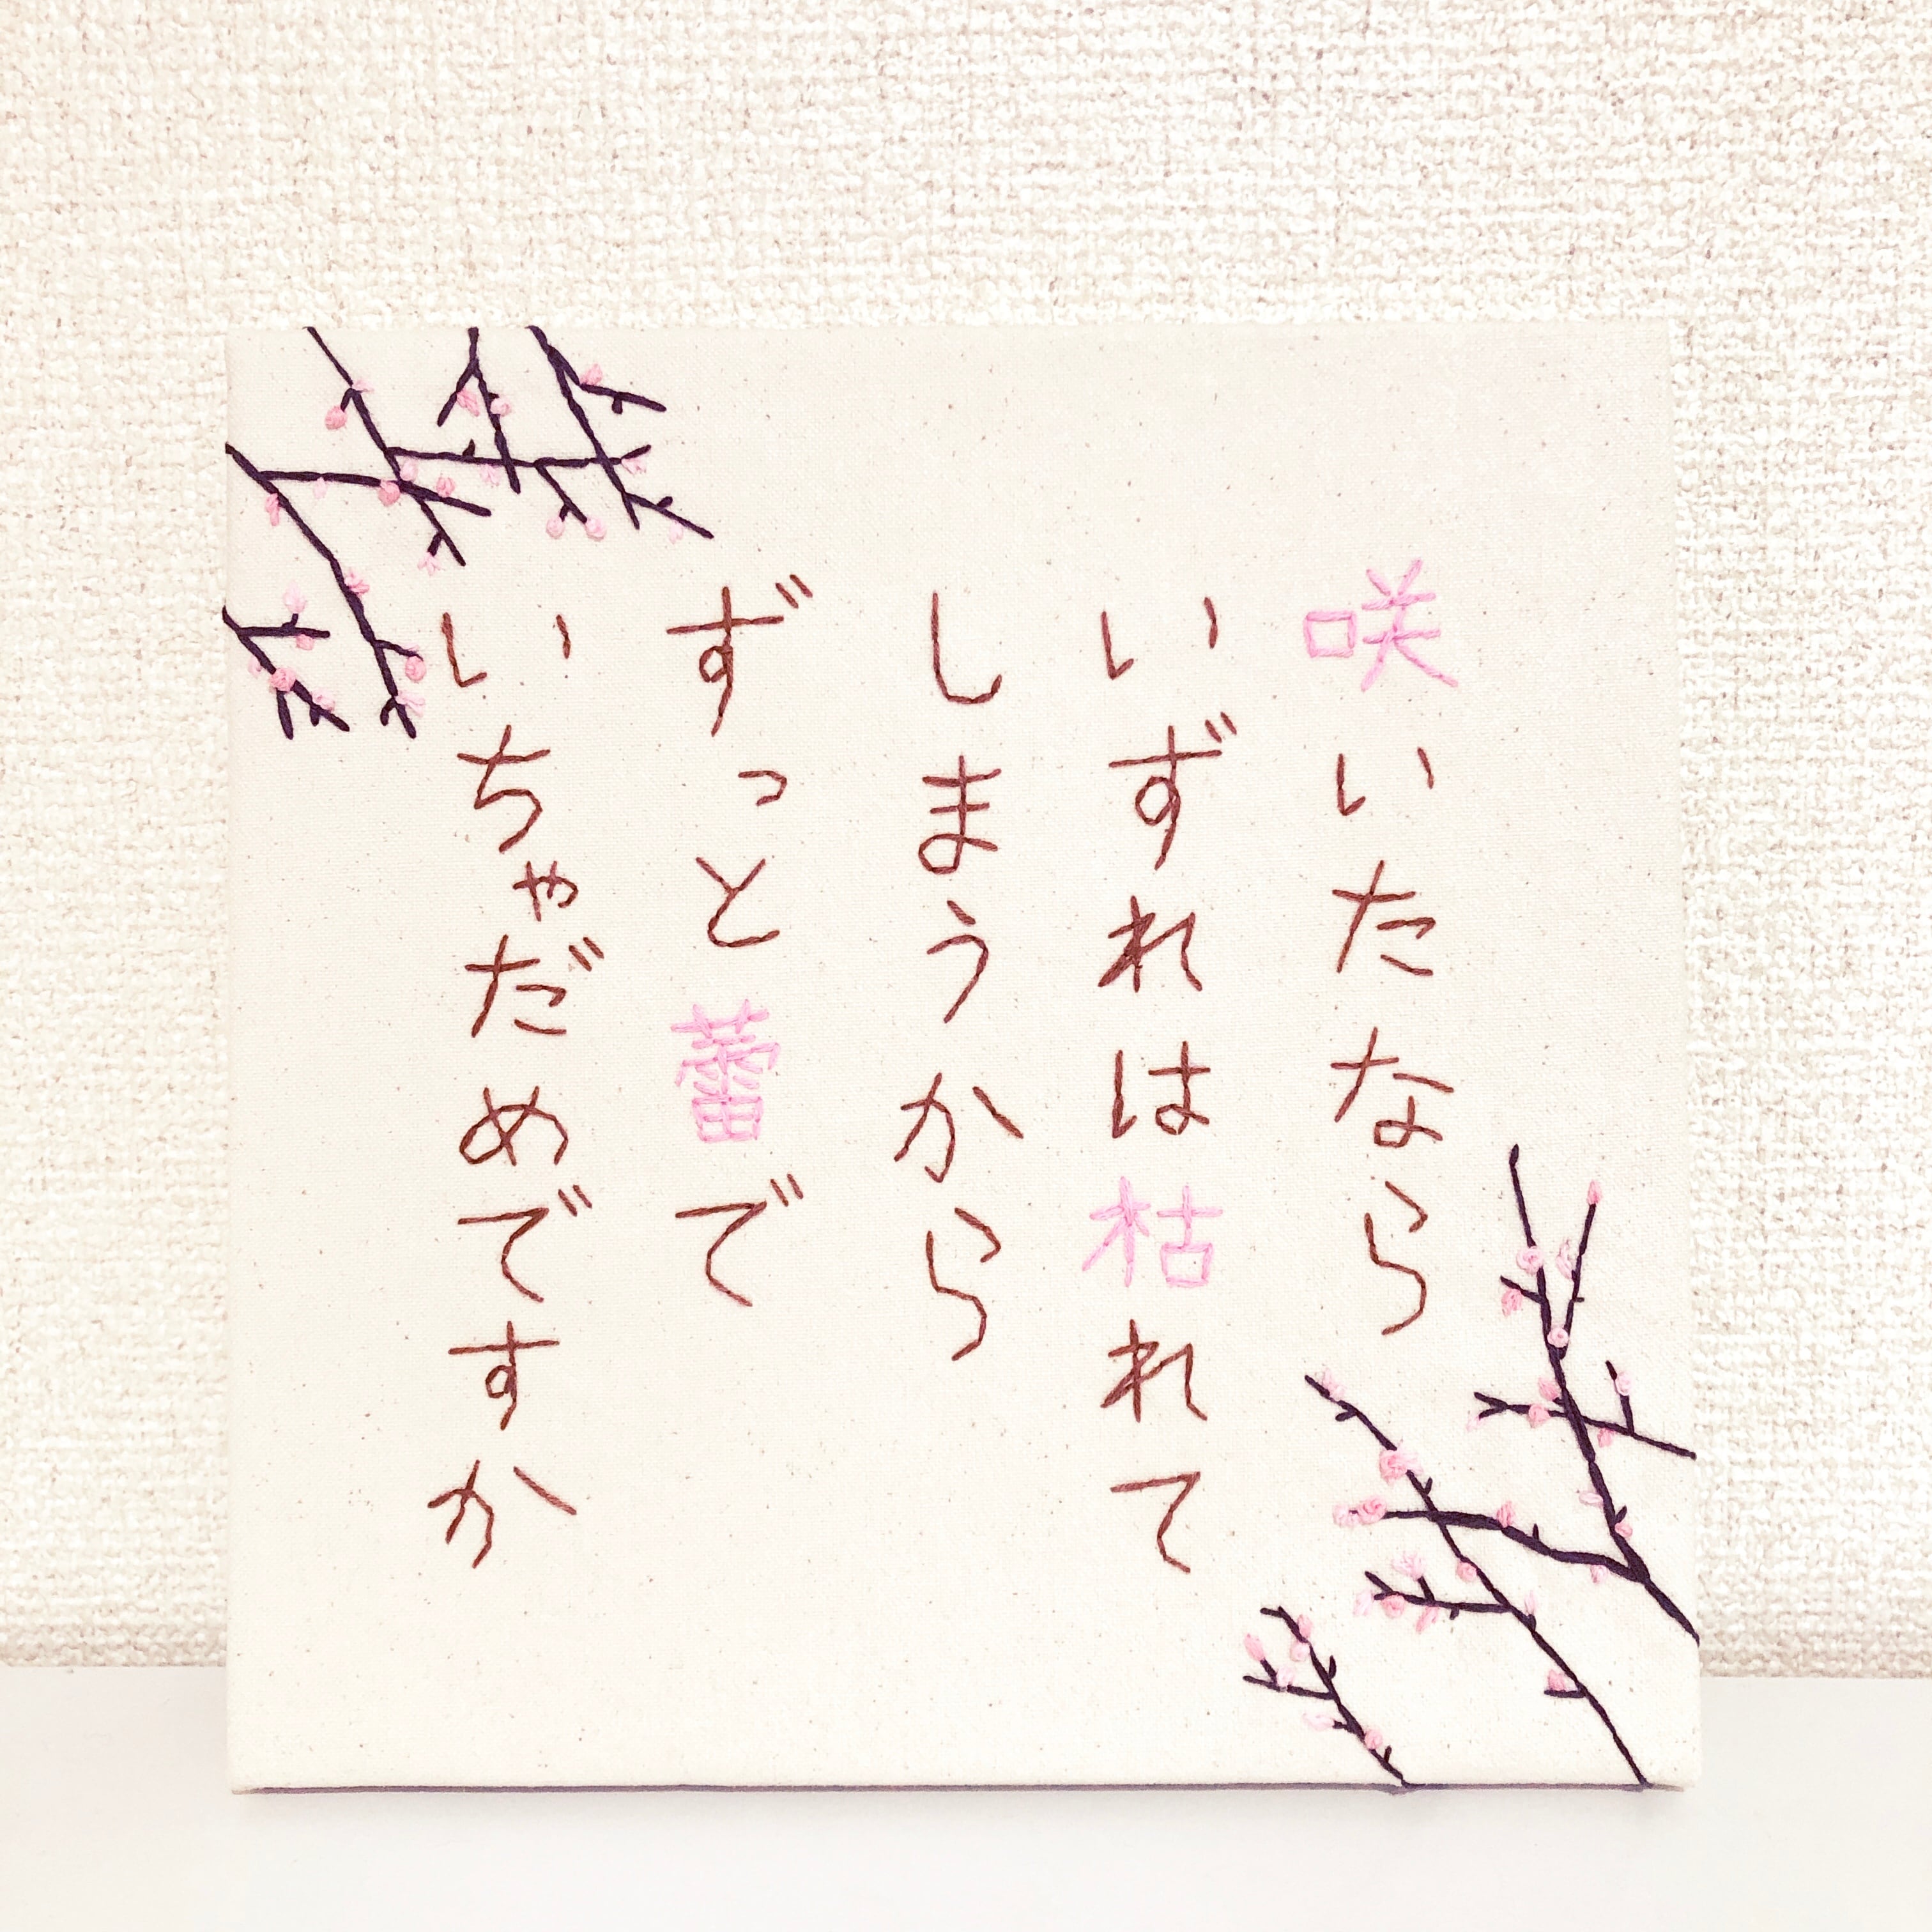 咲いたなら
いずれは枯れて
しまうから
ずっと蕾で
いちゃだめですか